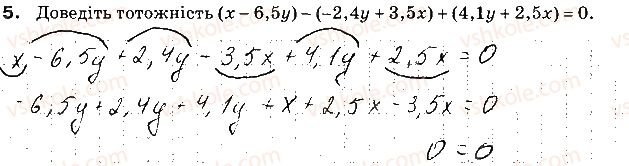 5. Доведіть тотожність (x – 6,5y) – (–2,4y + 3,5x) + (4,1y + 2,5x) = 0.
x - 6,5y + 2,4y - 3,5x + 4,1y + 2,5x = 0
-6,5y + 2,4y + 4,1y + x + 2,5x - 3,5x = 0
0 = 0